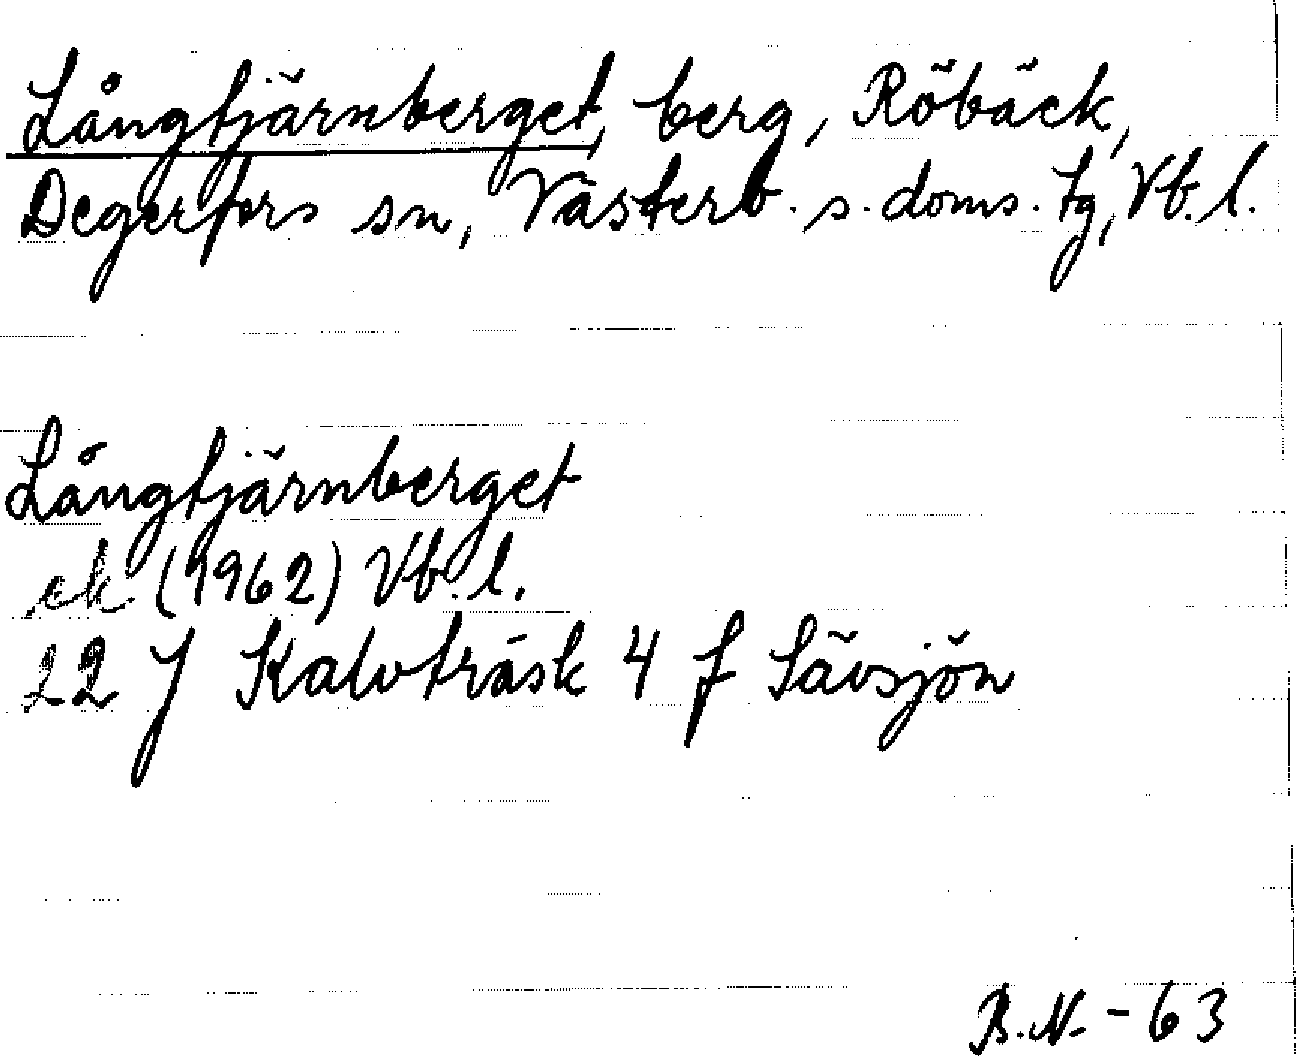 Långtjärnberget, berg, Röbäck,
Degerfors sn, Västerb. s. doms. tg, Vb. l.
Långtjärnberget
ek (1962) Vb. l.
22 J Kalvträsk 4 f Sävsjön
B.N. - 63